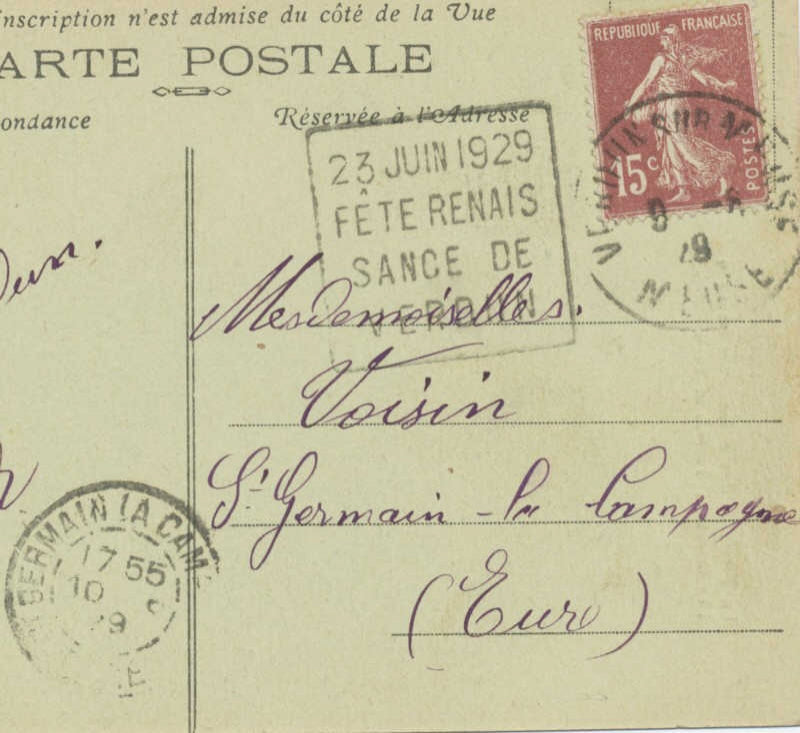 inscription n'est admise du côté de la Vue
ARTE POSTALE
ondance
Réservée à l'Adresse
REPUBLIQUE FRANÇAISE
15c
POSTES
23 JUIN 1929
FÊTE RENAIS
SANCE DE
VERDUN
VERDUN SUR MEUSE
29
MEUSE
Mesdemoiselles.
Voisin
St Germain - la Campagne
(Eure)
GERMAIN LA CAM
17 55
10
29